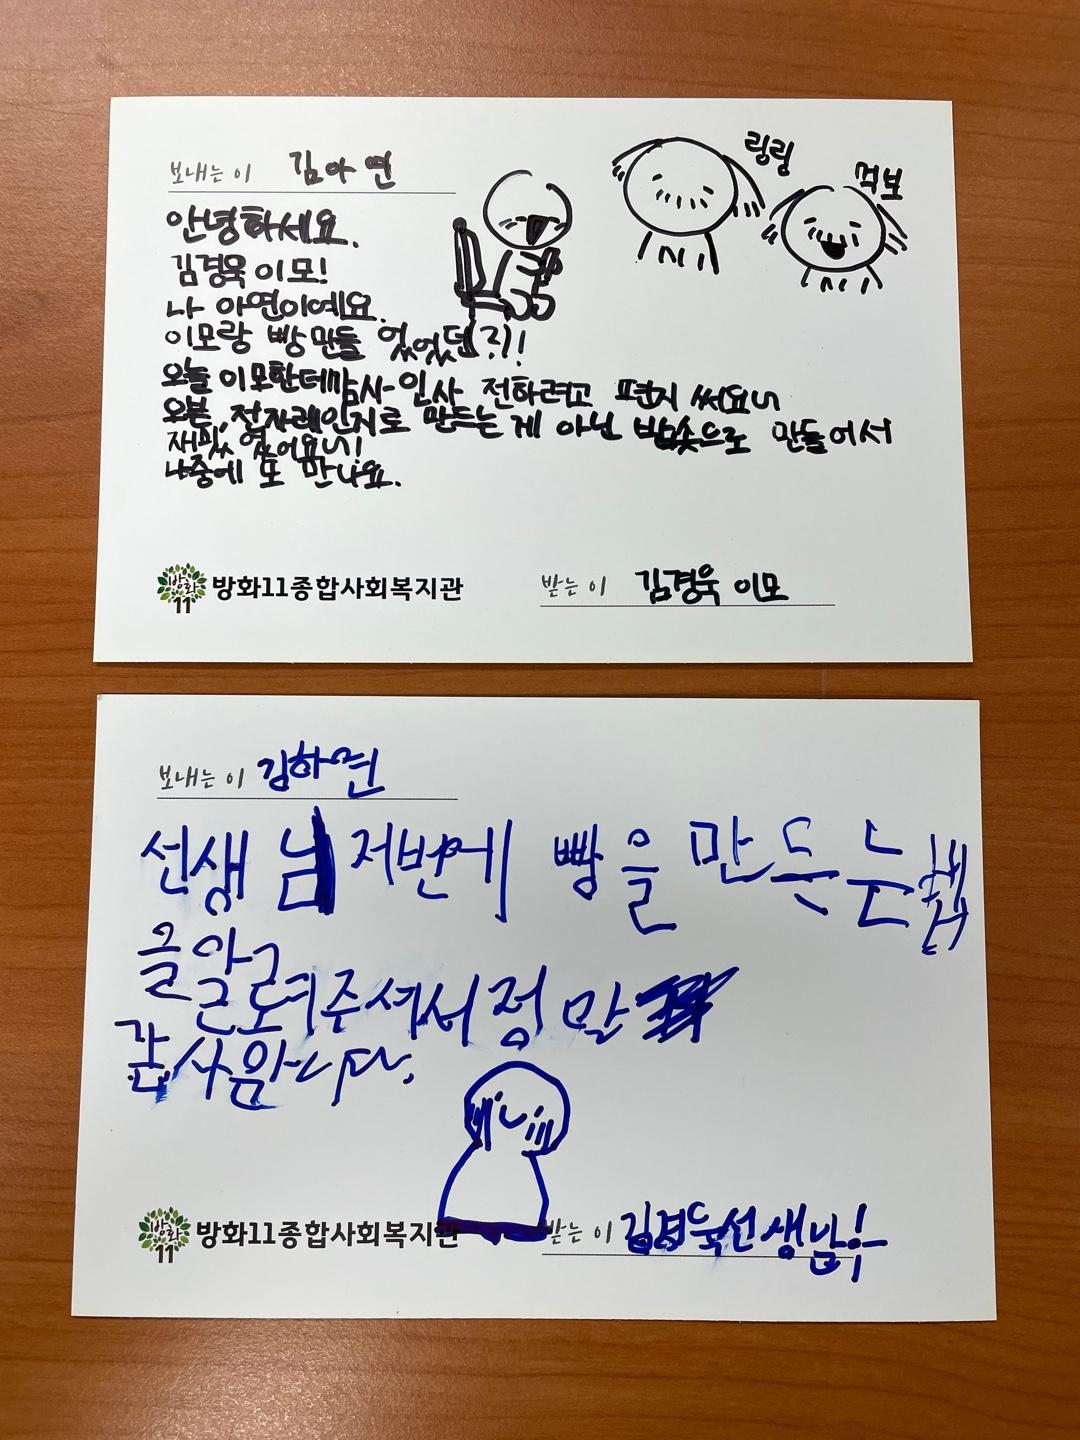 보내는 이 김아연
링링
먹보
안녕하세요.
김경욱 이모!
나 아연이예요.
이모랑 빵 만들 었었던?!!
오늘 이모한테 감사 인사 전하려고 편지 써요
오븐, 전자레인지로 만드는 게 아닌 밥솥으로 만들어서
재밌었어요!
나중에 또 만나요.
방화
11
방화11종합사회복지관
받는 이 김경욱 이모
보내는 이 김하연
선생님 저번에 빵을 만드는
을알려주셔서 정말
감사합니다.
방화
11
방화11종합사회복지관
받는 이 김경욱선생님!